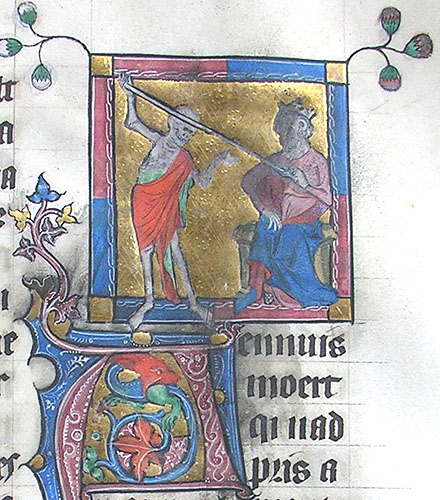 ennuis
moert
qi nad
pris a